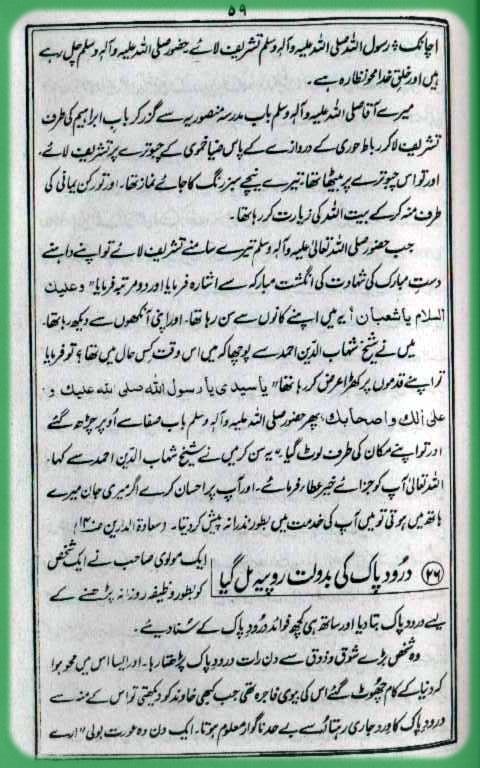 ۵۹
اچانک رسول اللہ صلی اللہ علیہ وآلہٖ وسلم تشریف لائے۔ حضور صلی اللہ علیہ وآلہٖ وسلم چل رہے
ہیں اور خلقِ خدا محوِ نظارہ ہے۔
میرے آقا صلی اللہ علیہ وآلہٖ وسلم باب مدرسہ منصوریہ سے گزر کر باب ابراہیم کی طرف
تشریف لا کر رباط حوری کے دروازے کے پاس ضیا خموی کے چبوترے پر تشریف لائے،
اور تو اس چبوترے پر بیٹھا تھا۔ تیرے نیچے سبز رنگ کا جائے نماز تھا۔ اور تو رکن یمانی کی
طرف منہ کر کے بیت اللہ کی زیارت کر رہا تھا۔
جب حضور صلی اللہ تعالیٰ علیہ وآلہٖ وسلم تیرے سامنے تشریف لائے تو اپنے داہنے
دستِ مبارک کی شہادت کی انگشت مبارکہ سے اشارہ فرمایا اور دو مرتبہ فرمایا "وعلیک
السلام یا شعبان" یہ میں اپنے کانوں سے سن رہا تھا۔ اور اپنی آنکھوں سے دیکھ رہا تھا۔
میں نے شیخ شہاب الدین احمد سے پوچھا کہ میں اس وقت کس حال میں تھا؟ تو فرمایا
تو اپنے قدموں پر کھڑا عرض کر رہا تھا "یا سیدی یا رسول اللہ صلی اللہ علیک و
علیٰ اٰلک واصحابک" پھر حضور صلی اللہ علیہ وآلہٖ وسلم باب صفا سے اوپر چڑھ گئے
اور تو اپنے مکان کی طرف لوٹ گیا۔ یہ سن کر میں نے شیخ شہاب الدین احمد سے کہا،
اللہ تعالیٰ آپ کو جزائے خیر عطاء فرمائے۔ اور آپ پر احسان کرے اگر میری جان میرے
ہاتھ میں ہوتی تو میں آپ کی خدمت میں بطور نذرانہ پیش کر دیتا۔ (سعادۃ الدارین
(۲۶) درود پاک کی بدولت روپیہ مل گیا
ایک مولوی صاحب نے ایک شخص
کو بطور وظیفہ روزانہ پڑھنے کے
لیے درود پاک بتا دیا اور ساتھ ہی کچھ فوائد درود پاک کے سنا دیئے۔
وہ شخص بڑے شوق و ذوق سے دن رات درود پاک پڑھتا رہا۔ اور ایسا اس میں محو ہوا
کہ دنیا کے کام چھوٹ گئے اس کی بیوی فاجرہ تھی جب کبھی خاوند کو دیکھتی تو اس کے منہ سے
درود پاک کا ورد جاری رہتا اسے بے حد ناگوار معلوم ہوتا۔ ایک دن وہ عورت بولی "ارے